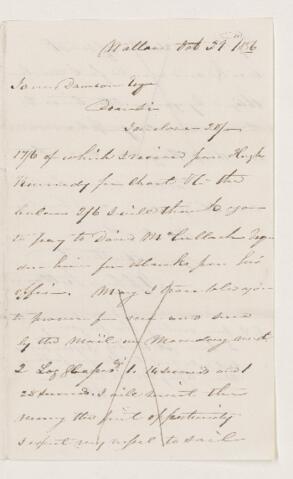 Wallace Oct 31st 1856
James Dawson Esq
Dear Sir
I enclose 20/-
17/6 of which I received from Hugh
Kennedy for Chart &c the
balance 2/6 I will thank you
to pay to David McCullach Esqr
due him for blanks from his
office. May I trouble you
to procure for me and send
by the mail on Monday next
2 Log Glasses 1. 14 second and 1
28 second. I will remit the
money the first opportunity
I expect my vessel to sail